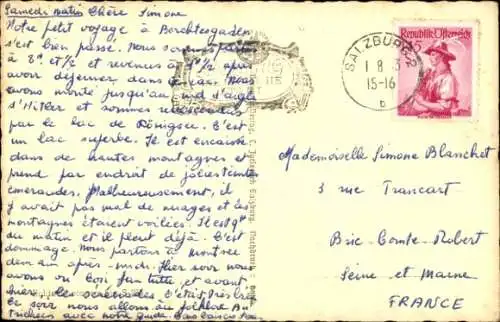 Samedi matin Chère Simone
Notre petit voyage à Berchtesgaden
s'est bien passé. Nous sommes partis
à 8h et ½ et revenus à 1h ½ après
avoir déjeuner dans le car. Nous
avons monté jusqu'au nid d'aigle
d'Hitler et sommes redescendus
par le lac de Königsee. C'est
un lac superbe. Il est encaissé
dans de hautes montagnes et
prend par endroit de jolies teintes
émeraudes. Malheureusement, il
y avait pas mal de nuages et les
montagnes étaient voilées. Il est 9h
du matin et il pleut déjà. C'est
dommage. Nous partons à
demain après-midi. Hier soir nous
avons vu Cosi fan tutte et avant
hier les sérénades c'était très
ce soir nous allons au folklore Au
trichiens avec notre guide.
SALZBURG 2
1 8 53
15-16
b
Republik Österreich
Mademoiselle Simone Blanchet
3 rue Trancart
Brie-Comte-Robert
Seine et Marne
FRANCE